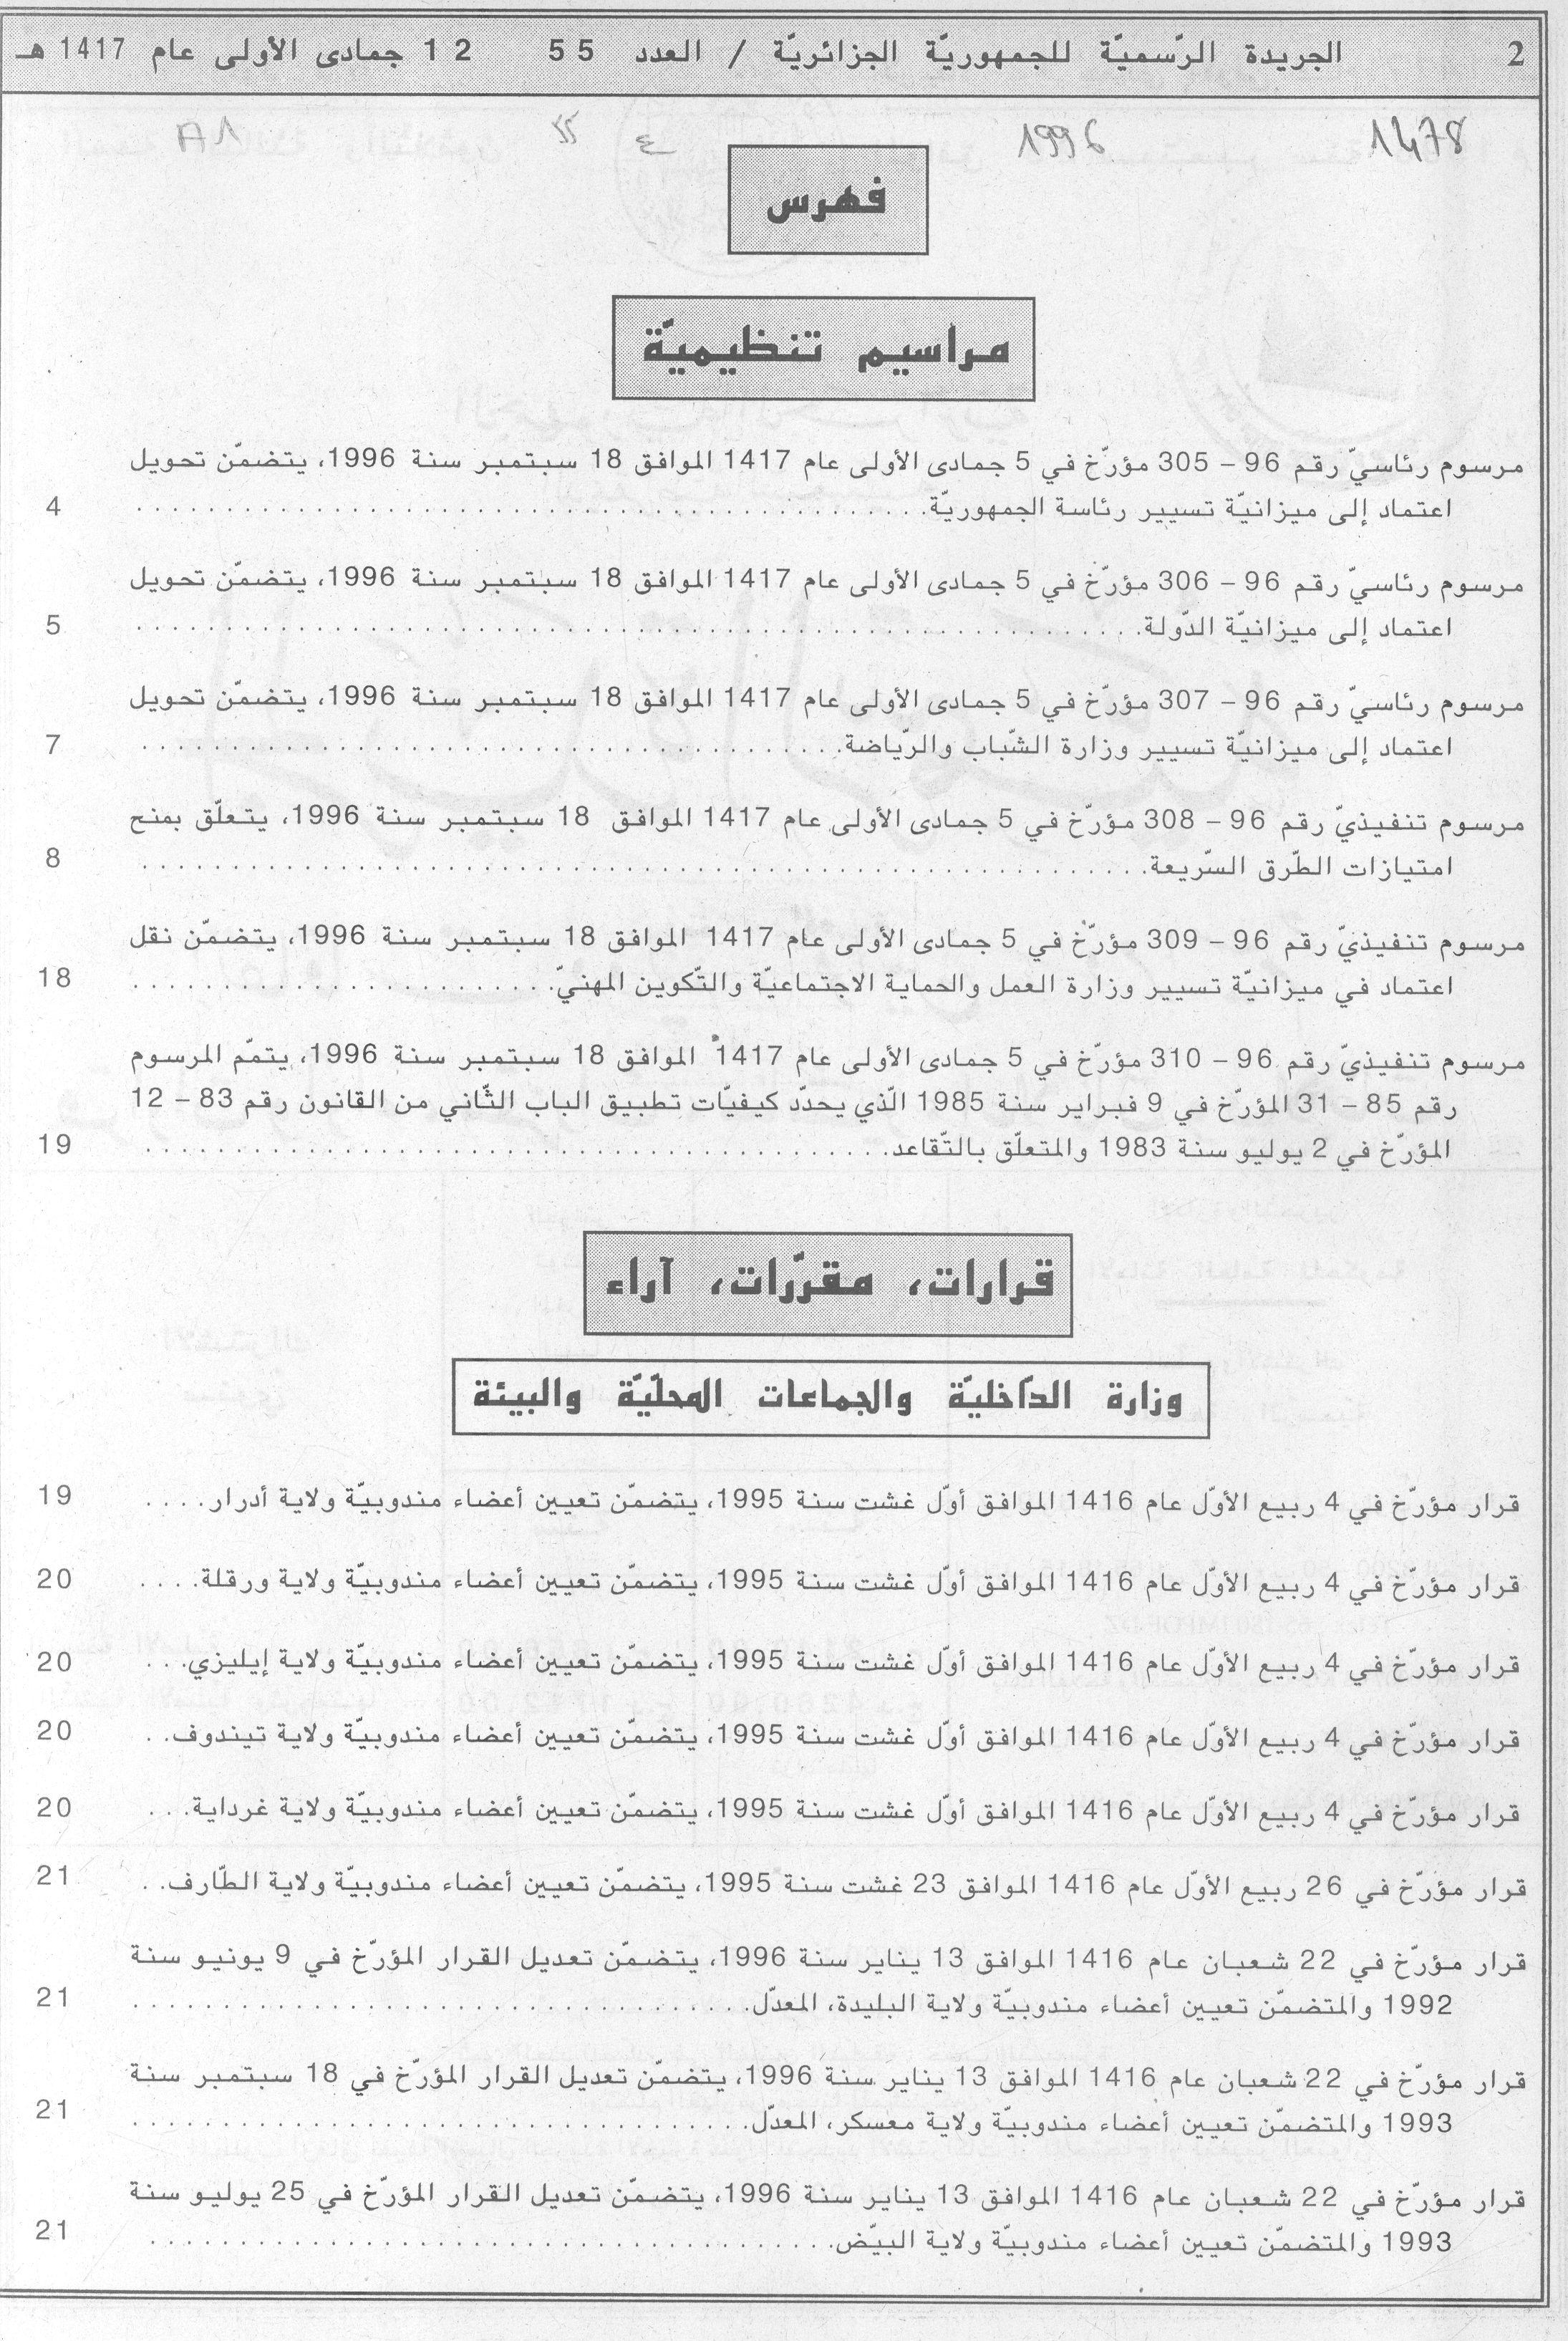 2 الجريدة الرّسميّة للجمهوريّة الجزائريّة / العدد 55 12 جمادى الأولى عام 1417 هـ
1478 1996 ع
فهرس
مراسيم تنظيميّة
مرسوم رئاسيّ رقم 96 – 305 مؤرّخ في 5 جمادى الأولى عام 1417 الموافق 18 سبتمبر سنة 1996، يتضمّن تحويل
اعتماد إلى ميزانيّة تسيير رئاسة الجمهوريّة. . . . . . . . . . 4
مرسوم رئاسيّ رقم 96 – 306 مؤرّخ في 5 جمادى الأولى عام 1417 الموافق 18 سبتمبر سنة 1996، يتضمّن تحويل
اعتماد إلى ميزانيّة الدّولة. . . . . . . . . . 5
مرسوم رئاسيّ رقم 96 – 307 مؤرّخ في 5 جمادى الأولى عام 1417 الموافق 18 سبتمبر سنة 1996، يتضمّن تحويل
اعتماد إلى ميزانيّة تسيير وزارة الشّباب والرّياضة. . . . . . . . . . 7
مرسوم تنفيذيّ رقم 96 – 308 مؤرّخ في 5 جمادى الأولى عام 1417 الموافق 18 سبتمبر سنة 1996، يتعلّق بمنح
امتيازات الطّرق السّريعة. . . . . . . . . . 8
مرسوم تنفيذيّ رقم 96 – 309 مؤرّخ في 5 جمادى الأولى عام 1417 الموافق 18 سبتمبر سنة 1996، يتضمّن نقل
اعتماد في ميزانيّة تسيير وزارة العمل والحماية الاجتماعيّة والتّكوين المهنيّ. . . . . . . . . . 18
مرسوم تنفيذيّ رقم 96 – 310 مؤرّخ في 5 جمادى الأولى عام 1417 الموافق 18 سبتمبر سنة 1996، يتمّم المرسوم
رقم 85 – 31 المؤرّخ في 9 فبراير سنة 1985 الّذي يحدّد كيفيّات تطبيق الباب الثّاني من القانون رقم 83 – 12
المؤرّخ في 2 يوليو سنة 1983 والمتعلّق بالتّقاعد. . . . . . . . . . 19
قرارات، مقرّرات، آراء
وزارة الدّاخليّة والجماعات المحلّيّة والبيئة
قرار مؤرّخ في 4 ربيع الأوّل عام 1416 الموافق أوّل غشت سنة 1995، يتضمّن تعيين أعضاء مندوبيّة ولاية أدرار. . . . 19
قرار مؤرّخ في 4 ربيع الأوّل عام 1416 الموافق أوّل غشت سنة 1995، يتضمّن تعيين أعضاء مندوبيّة ولاية ورقلة. . . . 20
قرار مؤرّخ في 4 ربيع الأوّل عام 1416 الموافق أوّل غشت سنة 1995، يتضمّن تعيين أعضاء مندوبيّة ولاية إيليزي. . . 20
قرار مؤرّخ في 4 ربيع الأوّل عام 1416 الموافق أوّل غشت سنة 1995، يتضمّن تعيين أعضاء مندوبيّة ولاية تيندوف. . 20
قرار مؤرّخ في 4 ربيع الأوّل عام 1416 الموافق أوّل غشت سنة 1995، يتضمّن تعيين أعضاء مندوبيّة ولاية غرداية. . . 20
قرار مؤرّخ في 26 ربيع الأوّل عام 1416 الموافق 23 غشت سنة 1995، يتضمّن تعيين أعضاء مندوبيّة ولاية الطّارف. . 21
قرار مؤرّخ في 22 شعبان عام 1416 الموافق 13 يناير سنة 1996، يتضمّن تعديل القرار المؤرّخ في 9 يونيو سنة
1992 والمتضمّن تعيين أعضاء مندوبيّة ولاية البليدة، المعدّل. . . . . . . . . . 21
قرار مؤرّخ في 22 شعبان عام 1416 الموافق 13 يناير سنة 1996، يتضمّن تعديل القرار المؤرّخ في 18 سبتمبر سنة
1993 والمتضمّن تعيين أعضاء مندوبيّة ولاية معسكر، المعدّل. . . . . . . . . . 21
قرار مؤرّخ في 22 شعبان عام 1416 الموافق 13 يناير سنة 1996، يتضمّن تعديل القرار المؤرّخ في 25 يوليو سنة
1993 والمتضمّن تعيين أعضاء مندوبيّة ولاية البيّض. . . . . . . . . . 21